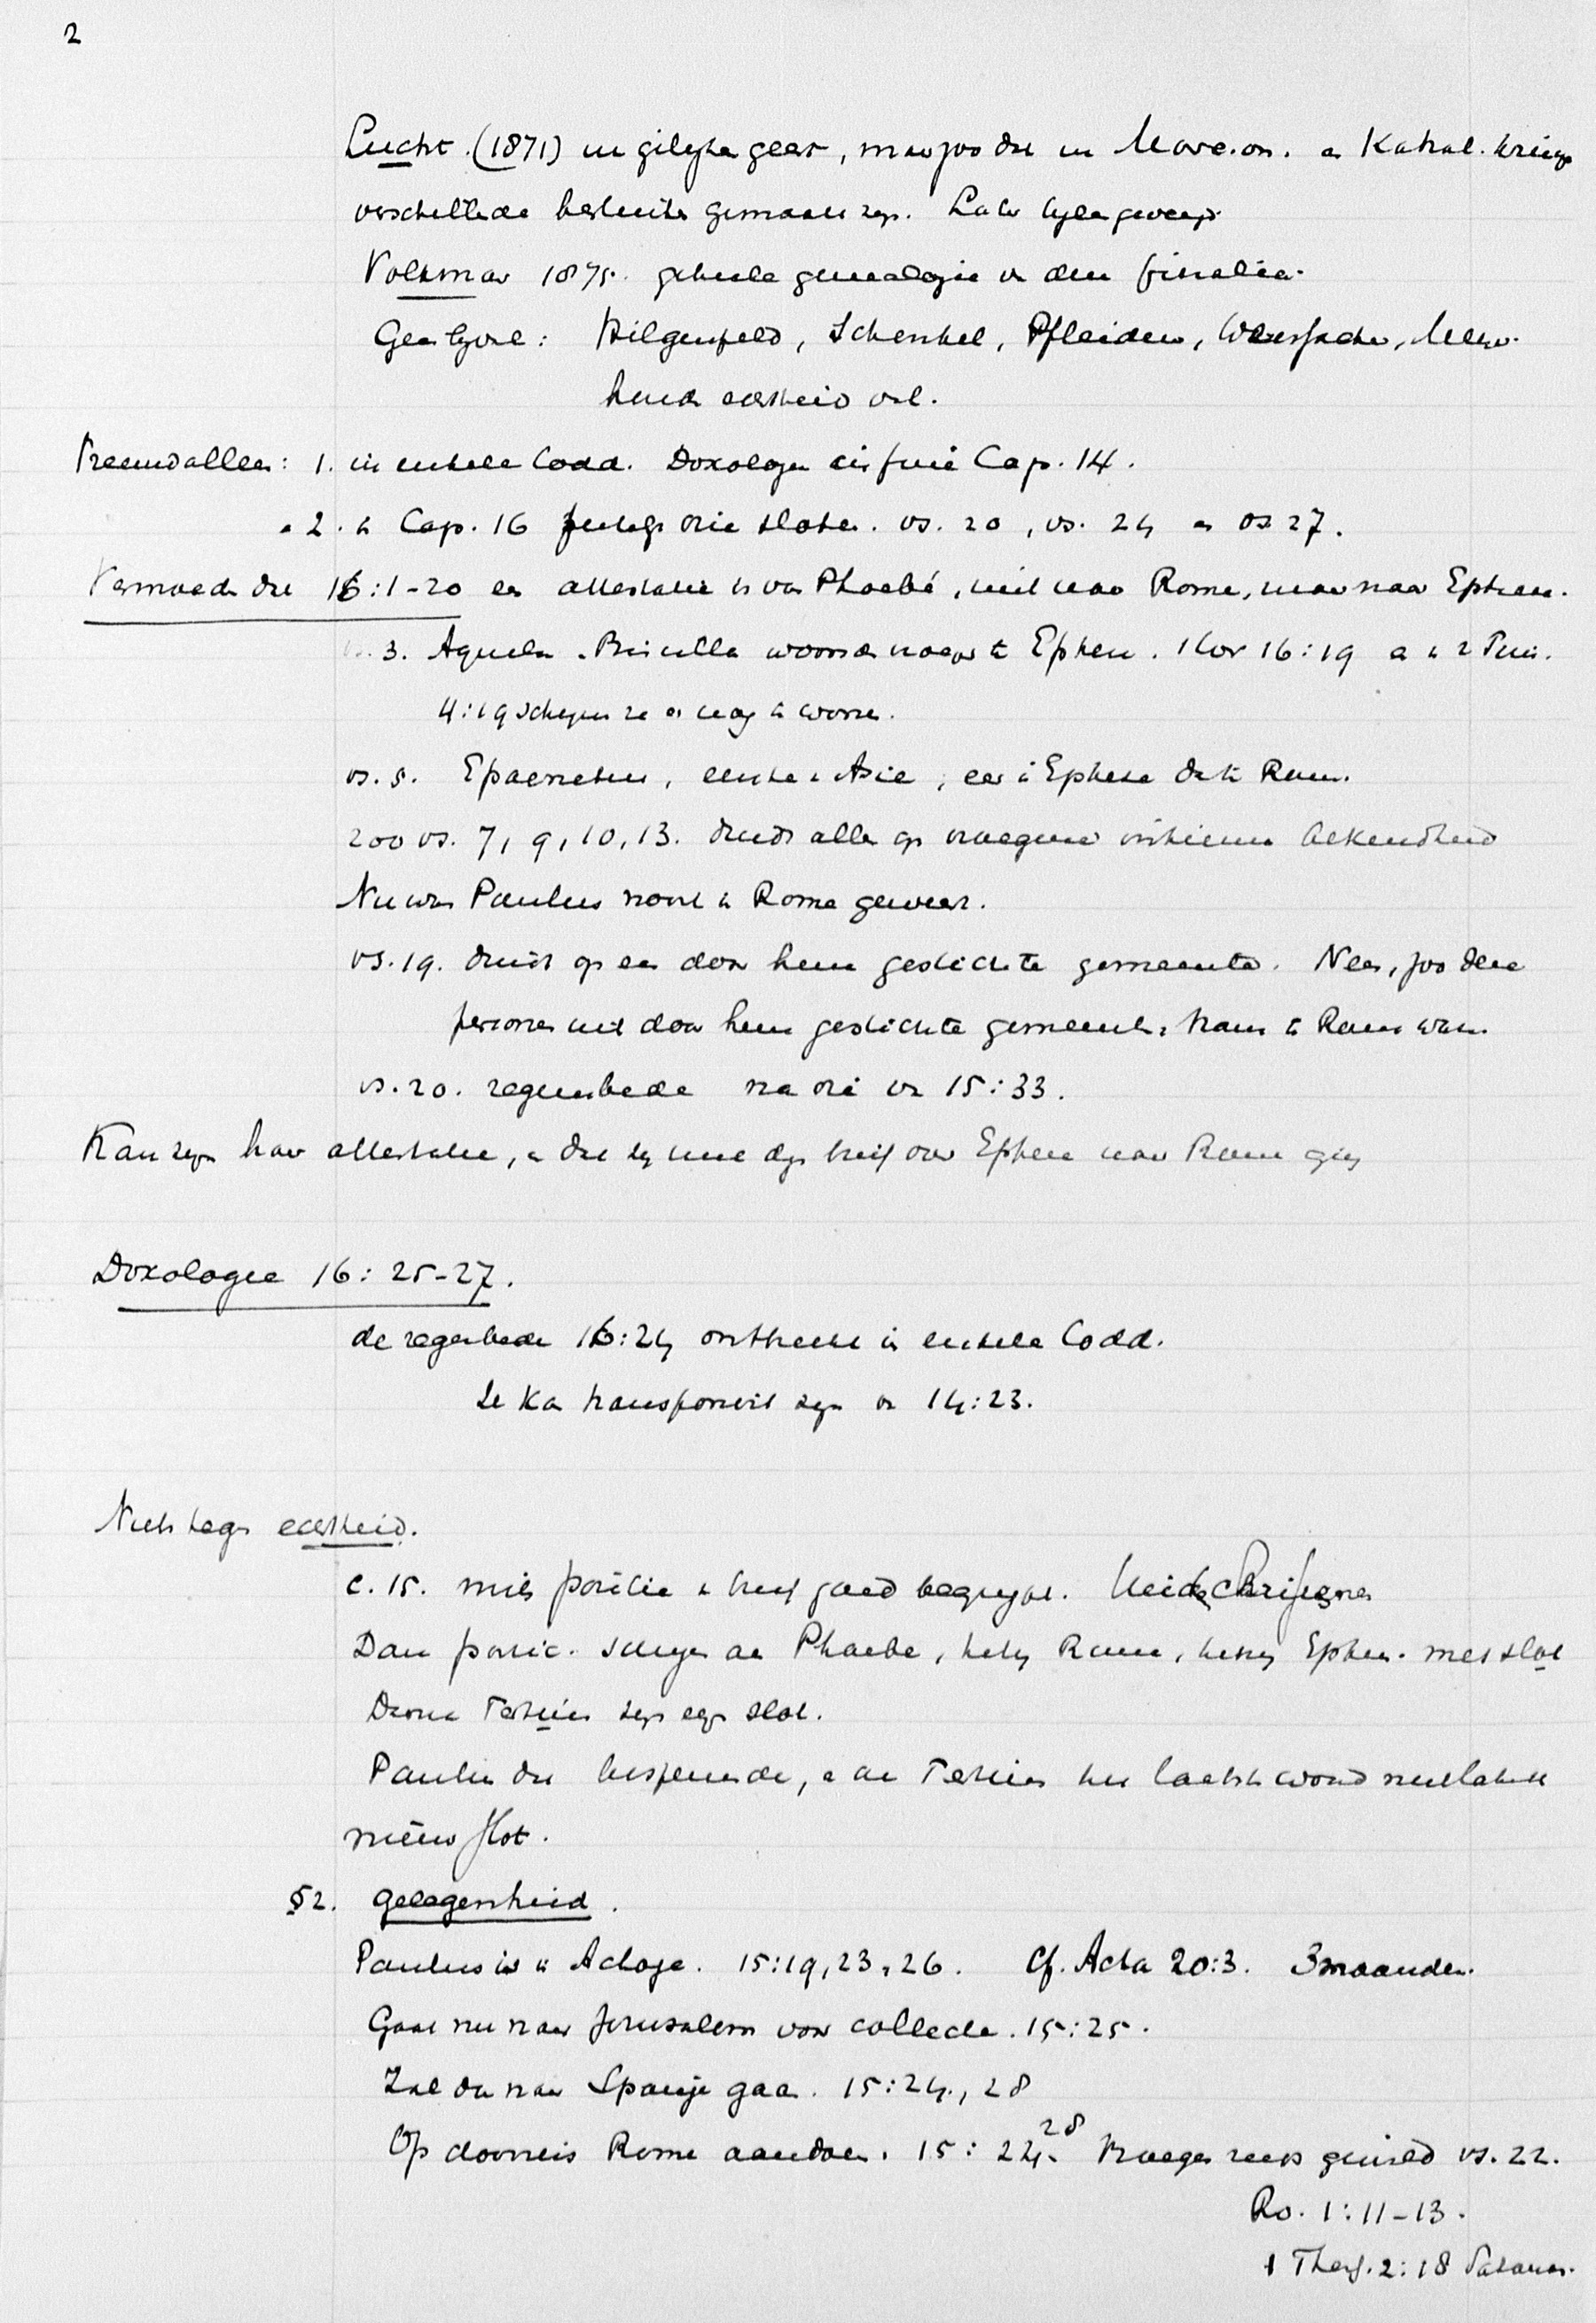 2
Lucht (1871) in gelijke geest, maar zoo dat in Marcion. en Kathol. kringen
verschillende besluiten gemaakt zijn. Later bijeengevoegd
Volkmar 1875. geheele genealogie v. den finalia.
Geen bijval: Hilgenfeld, Schenkel, Pfleider, Weizsäcker,
echtheid vol.
Vreemd alleen: 1. in enkele Codd. Doxologie in fine Cap. 14.
2. in Cap. 16 drie sloten. vs. 20, vs. 24 en vs 27.
Vermoed dat 16:1-20 een attestatie is van Phoebé, niet naar Rome, maar naar Ephese.
vs. 3. Aquila en Priscilla woonden vroeger te Ephese. 1 Kor 16:19 en in 2 Tim.
4:19 schijnen ze er nog te wonen.
vs. 5. Epaenetus, eersteling v. Azie, eer in Ephese dan te Rome.
zoo vs. 7, 9, 10, 13. duidt alles op vroegere intieme bekendheid
Nu was Paulus nooit in Rome geweest.
vs. 19. duidt op een door hem gestichte gemeente. Neen, zoo deze
personen uit door hem gestichte gemeenten thans te Rome waren.
vs. 20. zegenbede na die van 15:33.
Kan zijn haar attestatie, en dat zij met dezen brief over Ephese naar Rome ging
Doxologie 16: 25-27.
de zegenbede 16:24 ontbreekt in enkele Codd.
Ze kan transponeerd zijn v. 14:23.
Niets tegen echtheid.
c. 15. mits positie in brief goed begrijpt.
Dan partic. schrijven aan Phoebe, hetzij Rome, hetzij Ephese. met slot
Daarna Tertius zijn eigen slot.
Paulus dit bespeurende, en aan Tertius het laatste woord niet latende
nieuw slot.
§2. Gelegenheid.
Paulus is in Achaje. 15:19, 23, 26. Cf. Acta 20:3. 3 maanden.
Gaat nu naar Jerusalem voor collecte. 15:25.
Zal dan naar Spanje gaan. 15:24, 28
Op doorreis Rome aandoen. 15: 24, 28 Vroeger reeds gewild vs. 22.
Ro. 1:11-13.
1 Thess. 2:18 Satanas.